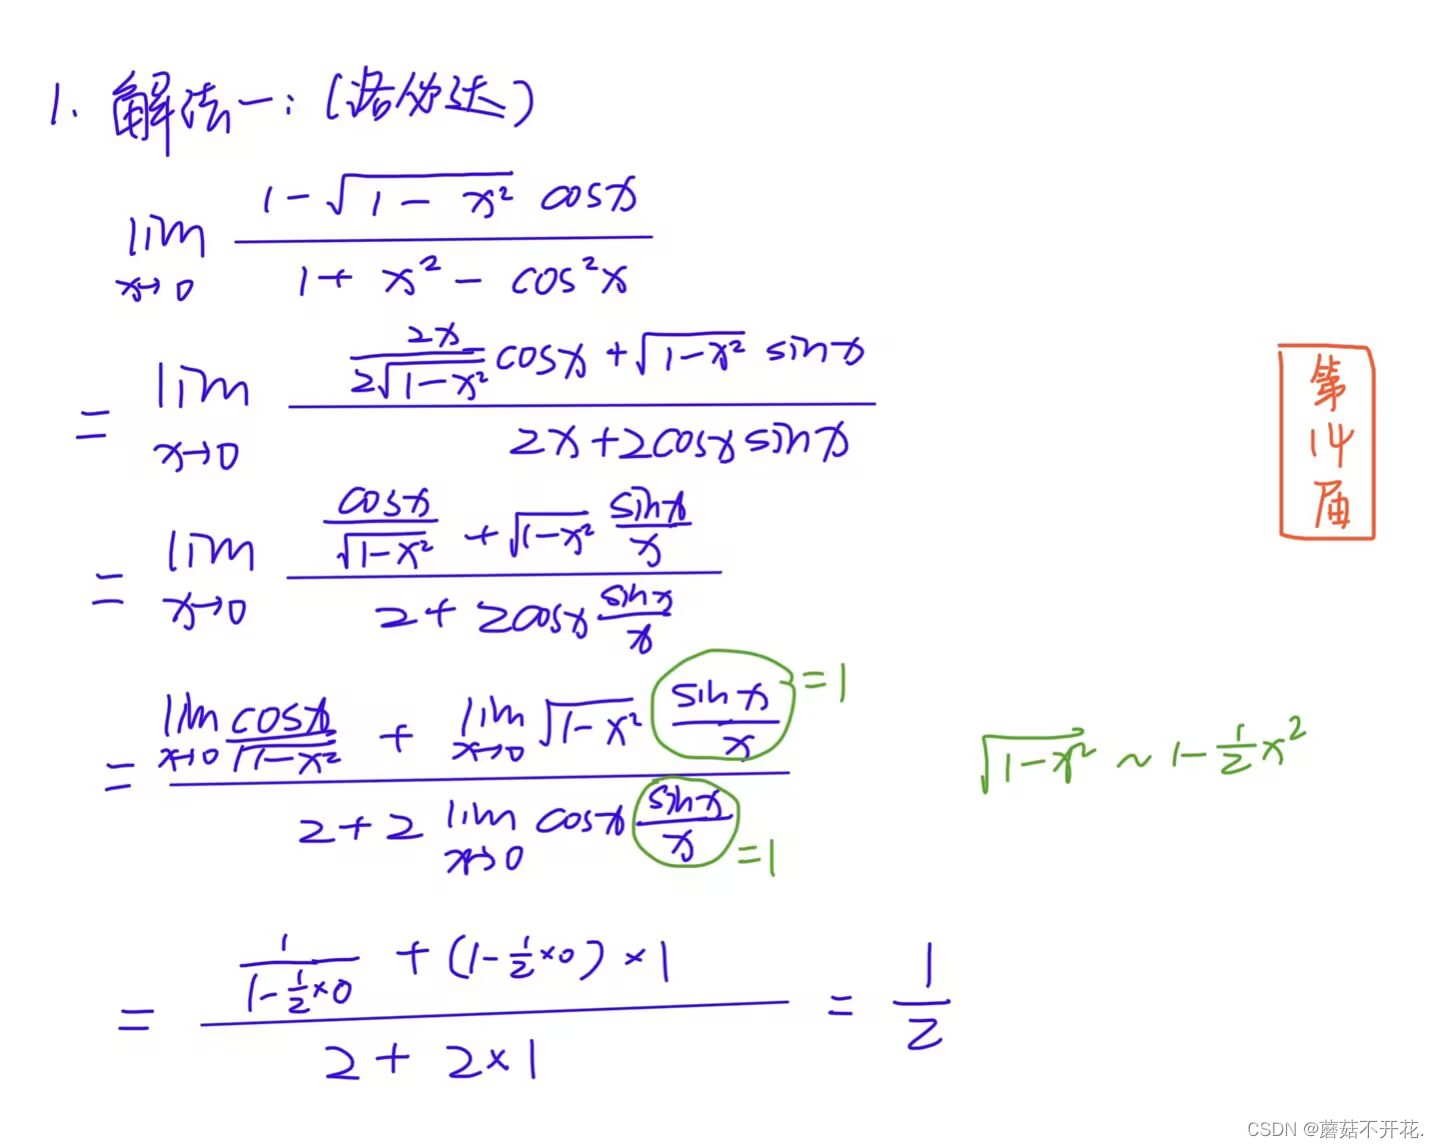 1. 解法一：(洛必达)
lim_{x→0} \frac{1-\sqrt{1-x^2} cosx}{1+x^2-cos^2x}
= lim_{x→0} \frac{\frac{2x}{2\sqrt{1-x^2}}cosx+\sqrt{1-x^2} sinx}{2x+2cosxsinx}
= lim_{x→0} \frac{\frac{cosx}{\sqrt{1-x^2}}+\sqrt{1-x^2}\frac{sinx}{x}}{2+2cosx\frac{sinx}{x}}
= \frac{lim_{x→0}\frac{cosx}{\sqrt{1-x^2}}+lim_{x→0}\sqrt{1-x^2}\frac{sinx}{x}}{2+2lim_{x→0}cosx\frac{sinx}{x}}
=1
=1
\sqrt{1-x^2} ~ 1-\frac{1}{2}x^2
= \frac{\frac{1}{1-\frac{1}{2}×0}+(1-\frac{1}{2}×0)×1}{2+2×1} = \frac{1}{2}
第
14
届
CSDN @蘑菇不开花.